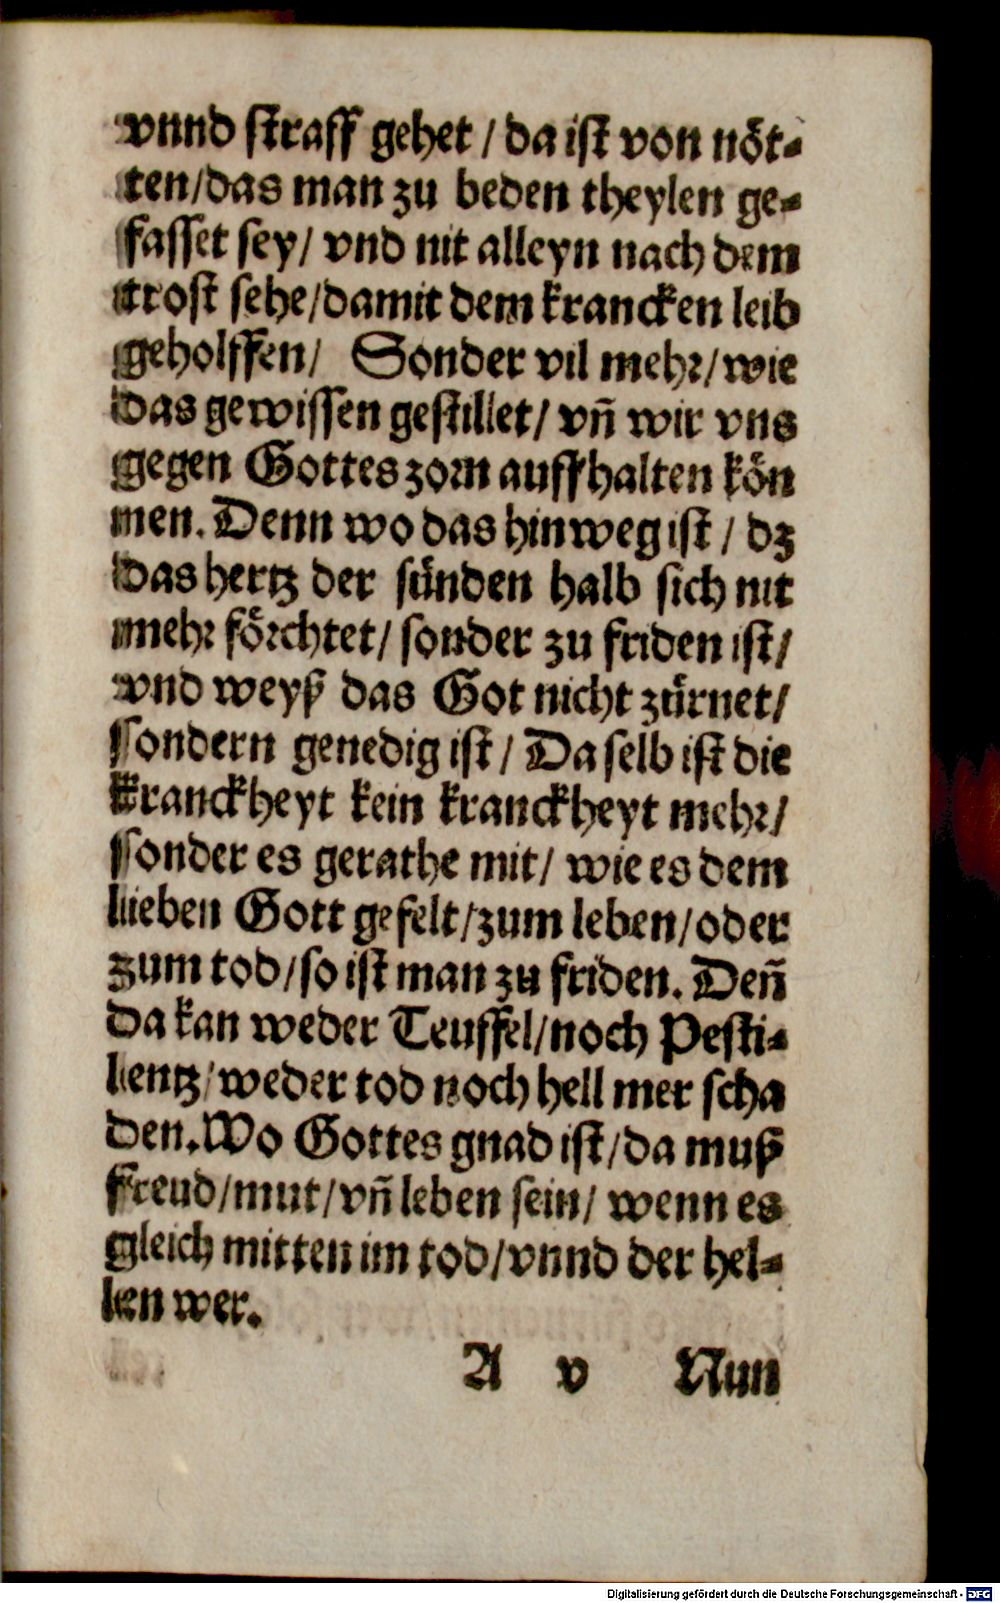 vnnd straff gehet / da ist von nöt-
ten/das man zu beden theylen ge-
fasset sey/ vnd nit alleyn nach dem
trost sehe/damit dem krancken leib
geholffen/ Sonder vil mehr/wie
das gewissen gestillet/ vñ wir vns
gegen Gottes zorn auffhalten kön
nen. Denn wo das hinweg ist / dz
das hertz der sünden halb sich nit
mehr förchtet/ sonder zu friden ist/
vnd weyß das Got nicht zürnet/
sondern genedig ist / Da selb ist die
kranckheyt kein kranckheyt mehr/
sonder es gerathe mit/ wie es dem
lieben Gott gefelt/zum leben/oder
zum tod/so ist man zu friden. Deñ
da kan weder Teuffel/noch Pesti-
lentz/weder tod noch hell mer scha
den. Wo Gottes gnad ist/da muß
freud/mut/vñ leben sein/ wenn es
gleich mitten im tod/vnnd der hel-
len wer.
A v Nun
Digitalisierung gefördert durch die Deutsche Forschungsgemeinschaft - DFG